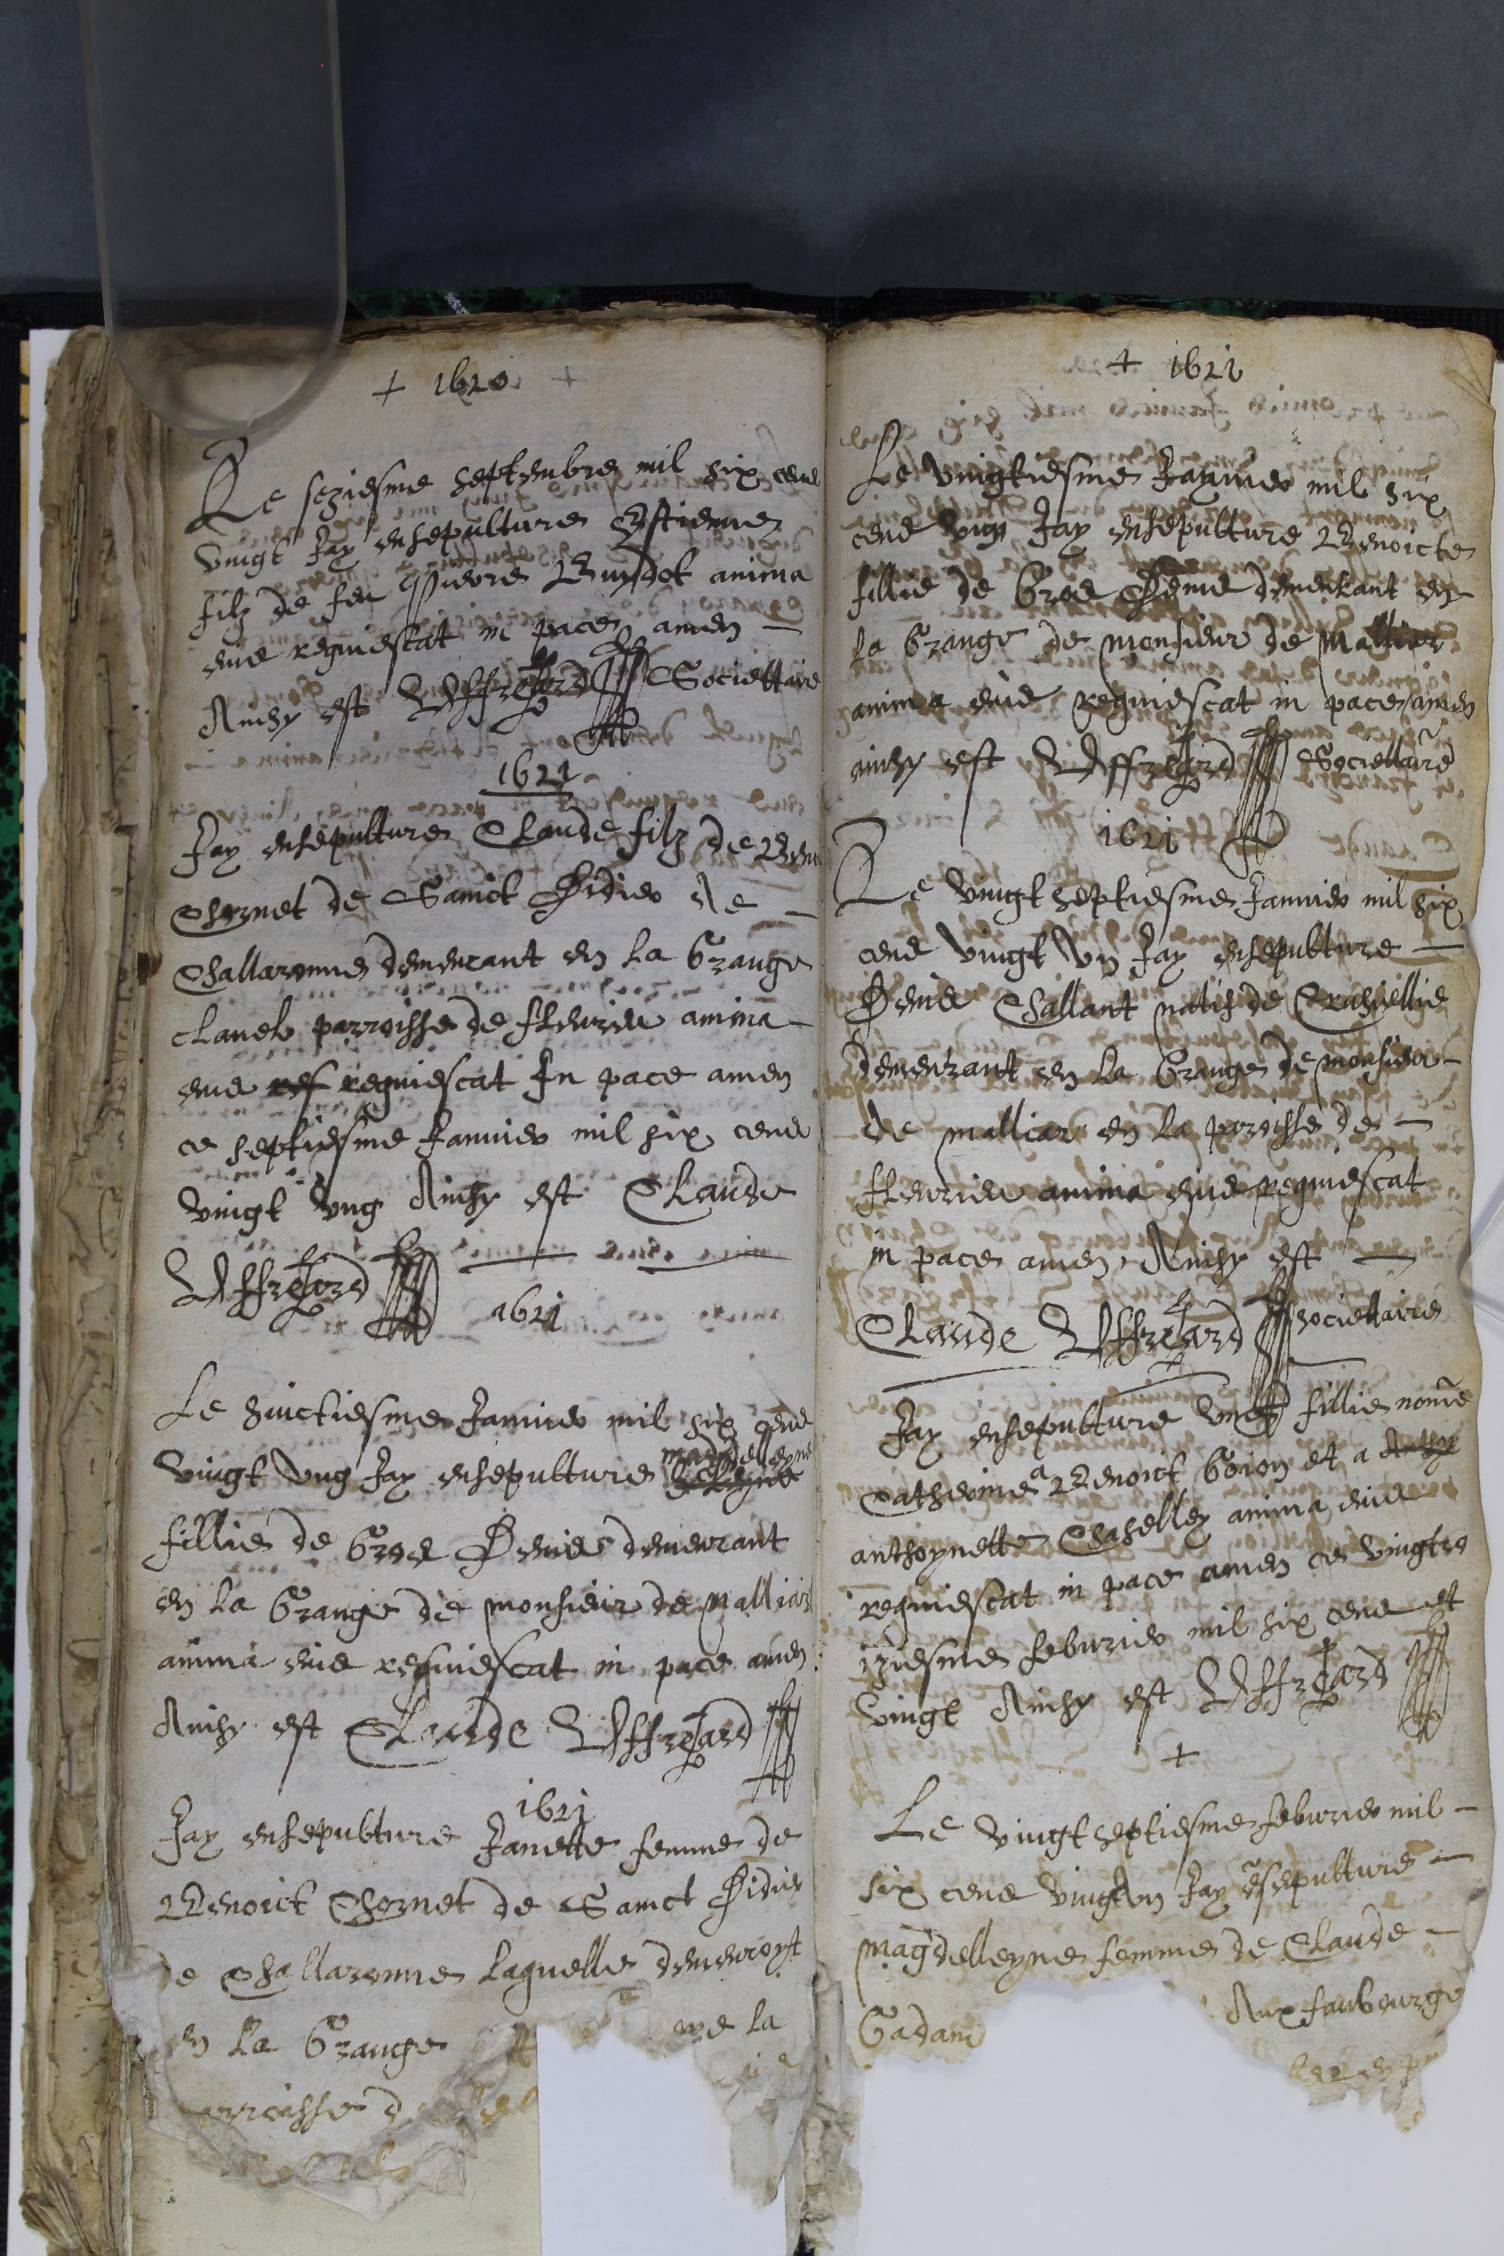 + 1620 +
Le seziesme septembre mil six cens
vingt Jay ensepulture Estienne
filz de feu pierre Buydot anima
eius requiescat in pace amen
Ainsy est Uffreard Societtaire
1621
Jay ensepulture Claude filz de Beno
Chornet de Sainct Didier de
Challaronne demeurant en la Grange
clavel parroisse de fleurieu anima
eius res requiescat In pace amen
ce septiesme Januier mil six cens
vingt vng Ainsy est Claude
Uffreard
1621
Le huictiesme Januier mil six cens
vingt vng Jay ensepulture magdelleyne
fillie de Gros Denis demeurant
en la Grange de monsieur de malliar
anima eius requiescat in pace amen
Ainsy est Claude Uffreard
1621
Jay ensepulture Janette femme de
Benoict Chornet de Sainct Didier
de Challaronne laquelle demeuroyt
en la Grange la
arroisse d
+ 1621
Le vingtiesme Januier mil six
cens vng Jay ensepulture Benoicte
fillie de Gros Denis demeurant en
la Grange de monsieur de malliar
anima eius requiescat in pace amen
ainsy est Uffreard Societtaire
1621
Le vingt septiesme Januier mil six
cens vingt vn Jay ensepulture
Denis Challant natif de
demeurant en la Grange de monsieur
de malliar en la parroisse de
fleurieu anima eius requiescat
in pace amen Ainsy est
Claude Uffreard societtaire
Jay ensepulture vne fillie nomme
Catherine a Benoict Goion et a Anthoy
anthoynette Chaselley anima eius
requiescat in pace amen ce vingtro
iziesme feburier mil six cens et
vingt Ainsy est Uffreard
+
Le vingt septiesme feburier mil
six cens vingt vn Jay ensepulture
magdelleyne femme de Claude
Gadani Aux faubourgs